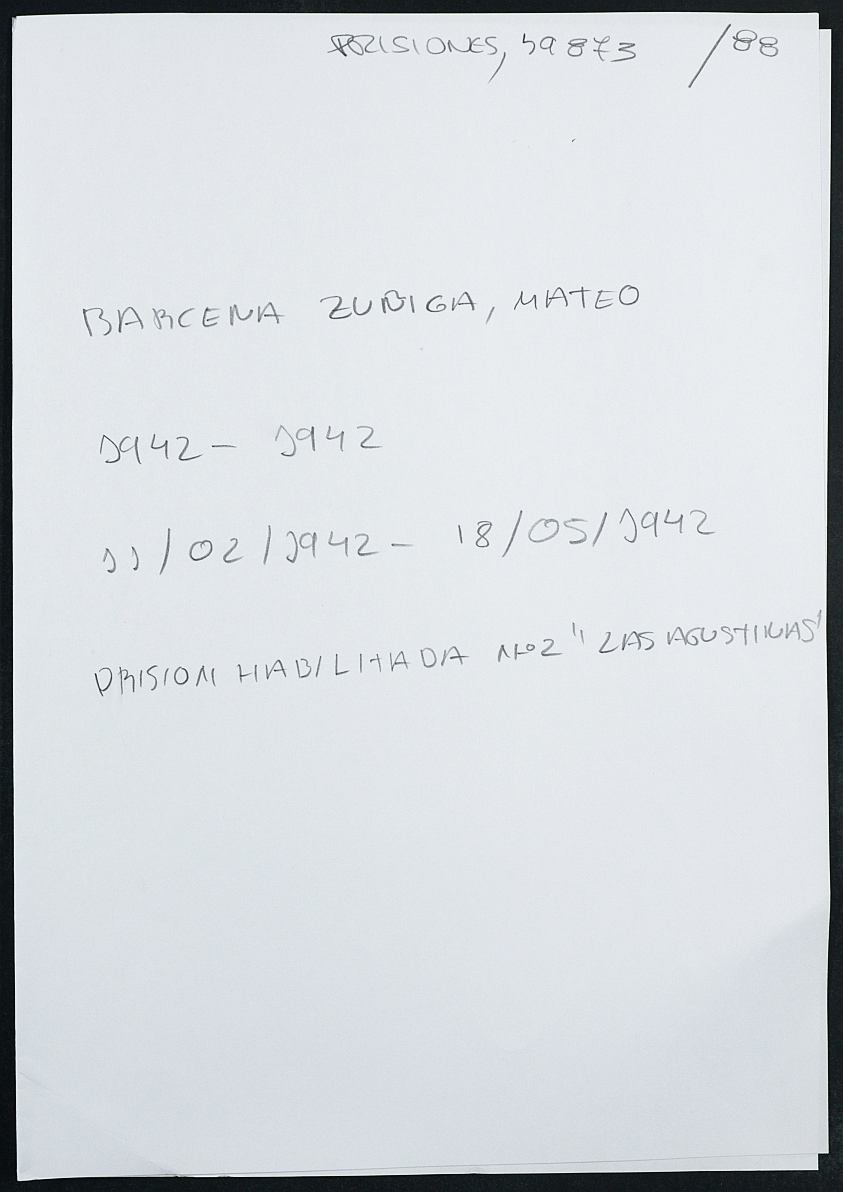 PRISIONES, 59873 /88
BARCENA ZUÑIGA, MATEO
1942 - 1942
11/02/1942 - 18/05/1942
PRISION HABILITADA Nº2 "LAS AGUSTINAS"